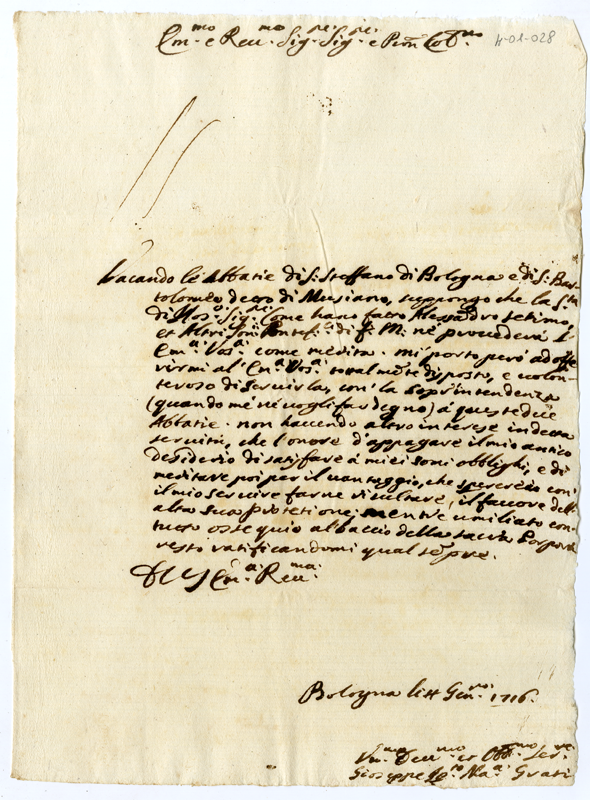 Em.mo e Reu.mo Sig.re Sig.re e Pron Col.mo
4-01-028
Vacando le Abbatie di S: Steffano di Bologna e di S: Bar
tolomeo decto di Musiano, suppongo che la S.tà
di Nos.o Sig.re Come hano facto Alessandro Setimo,
et Altri Somi Pontef.i di f: M: né provederà L
Em.a Vos.a come medita. mi porto però ad offe
rirmi al'Em.a Vos.a total.mete disposto, e uolon
teroso di Seruirla, con la Soprintendenza
(quando mé né uogli far degno) à queste due
Abbatie. non hauendo altro interese in decta
seruitù, che l'onore d'appagare il mio antico
desiderio di satifare à miei somi obblighi, e di
meditare poi per il uantaggio, che sperereio con
il mio seruire farne risultare, il fauore dell
alta sua protetione; mentre umiliato con
tutto ossequio al baccio della sacra Porpora
resto ratificandomi qual sempre.
Di V Em.a Reu.ma
Bologna li Gen.ro 1716.
Vm.mo Deu.mo et Obb.mo Ser.re
Gioseppe Ma.a Grati